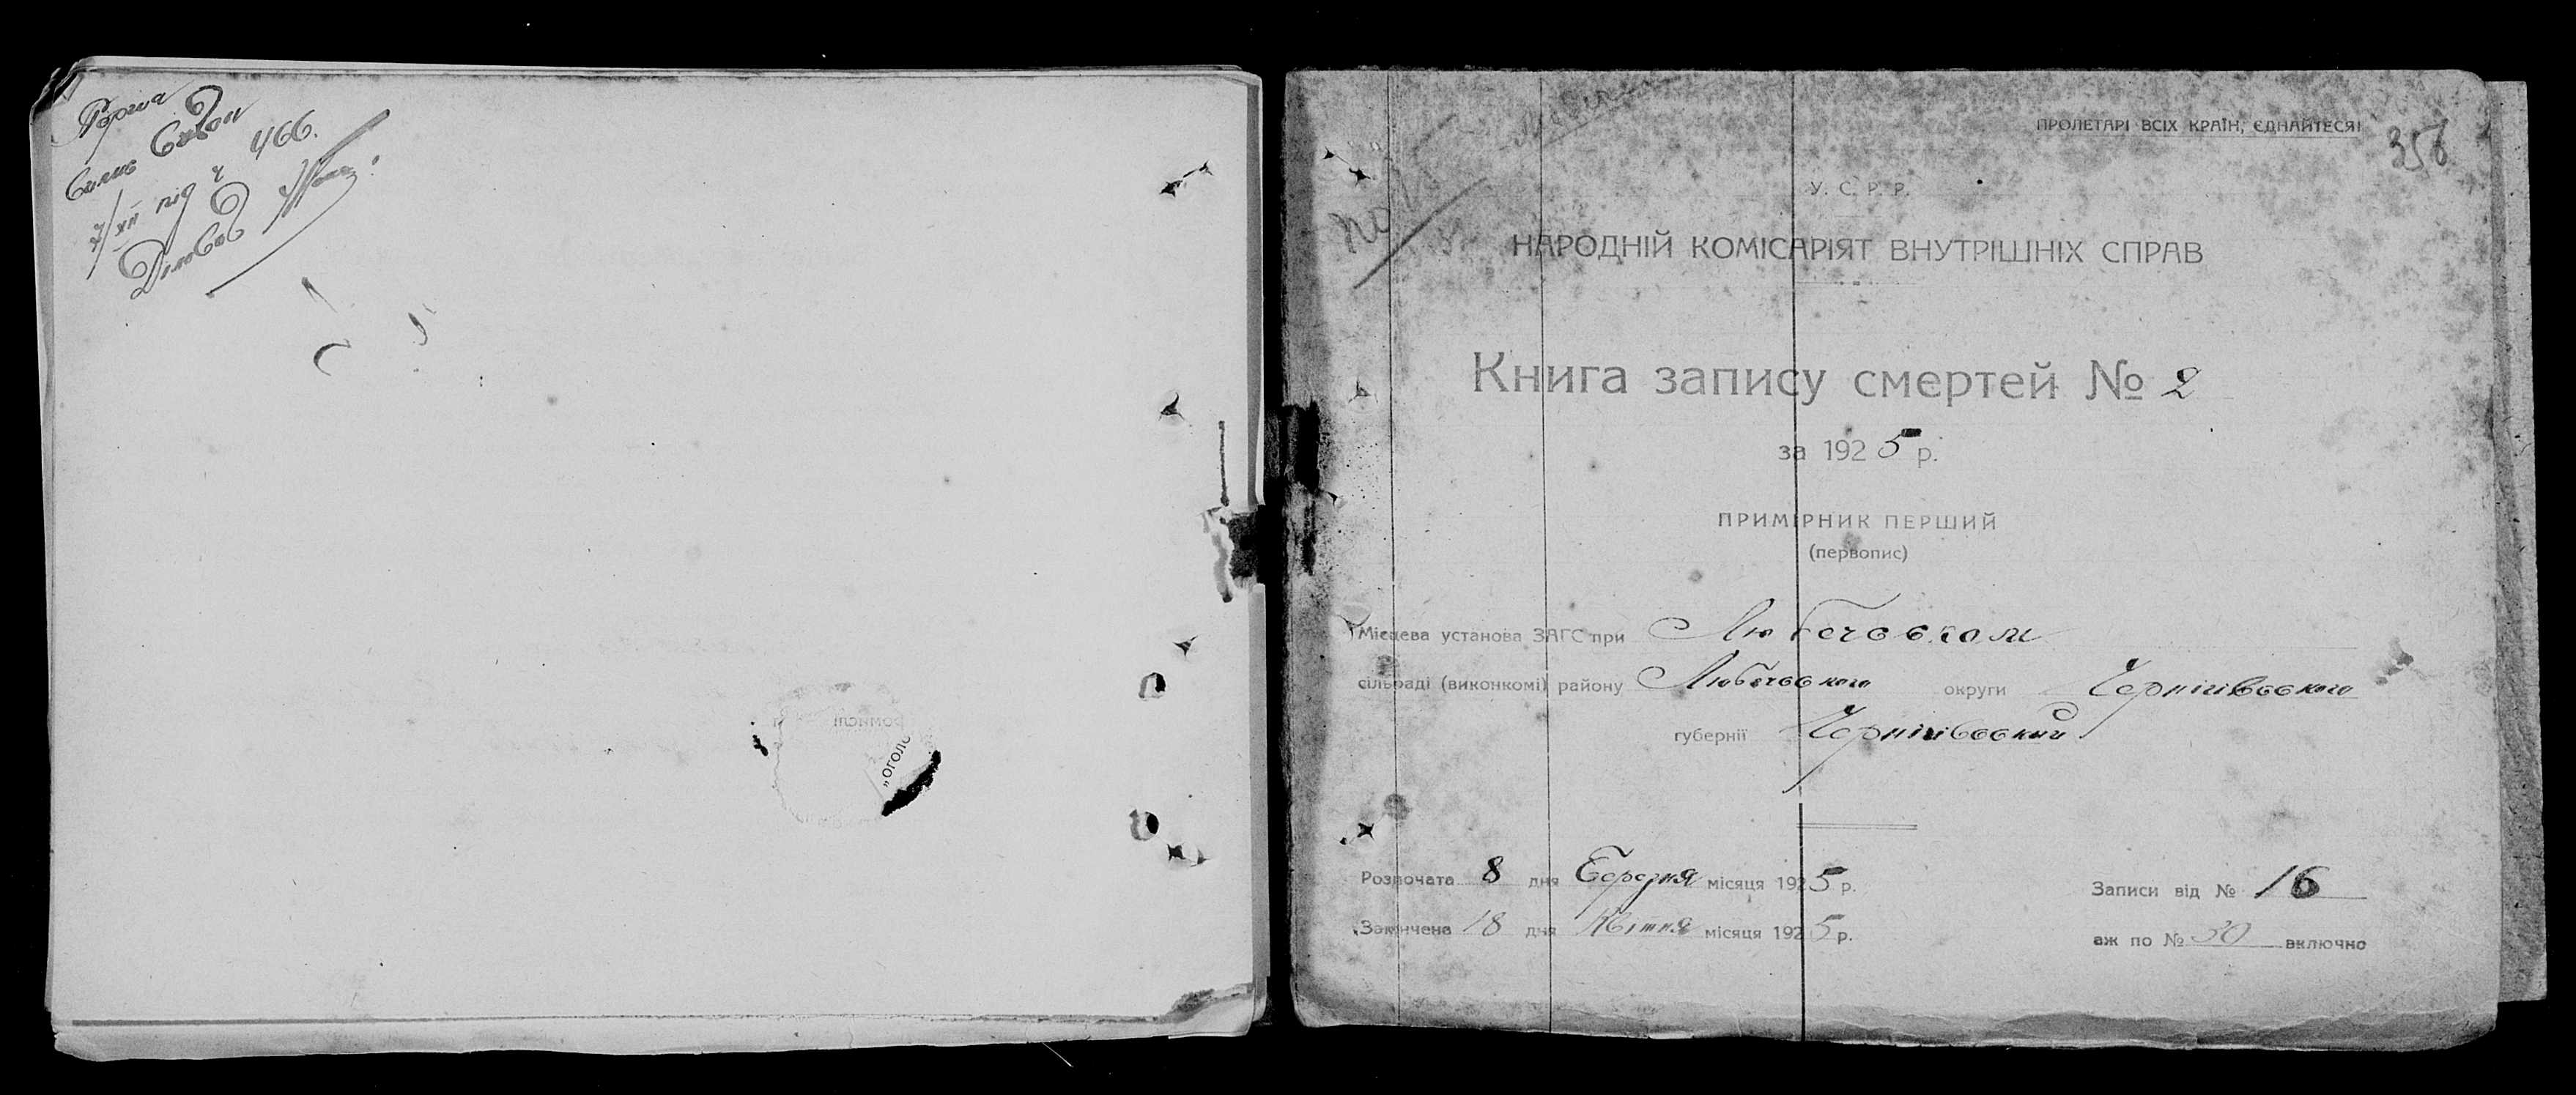 466.
7/XII під ч
Діловод
"оголо
ПРОЛЕТАРІ ВСІХ КРАЇН, ЄДНАЙТЕСЯ!
356
У. С. Р. Р.
НАРОДНІЙ КОМІСАРІЯТ ВНУТРІШНІХ СПРАВ
Книга запису смертей № 2
за 1925 р.
ПРИМІРНИК ПЕРШИЙ
(первопис)
Місцева установа ЗАГС при Любечевском
сільраді (виконкомі) району Любечевського округи Чернігівського
губернії Чернігівський
Розпочата 8 дня Березня місяця 1925 р.
Записи від № 16
Закінчена 18 дня Квітня місяця 1925 р.
аж по № 30 включно